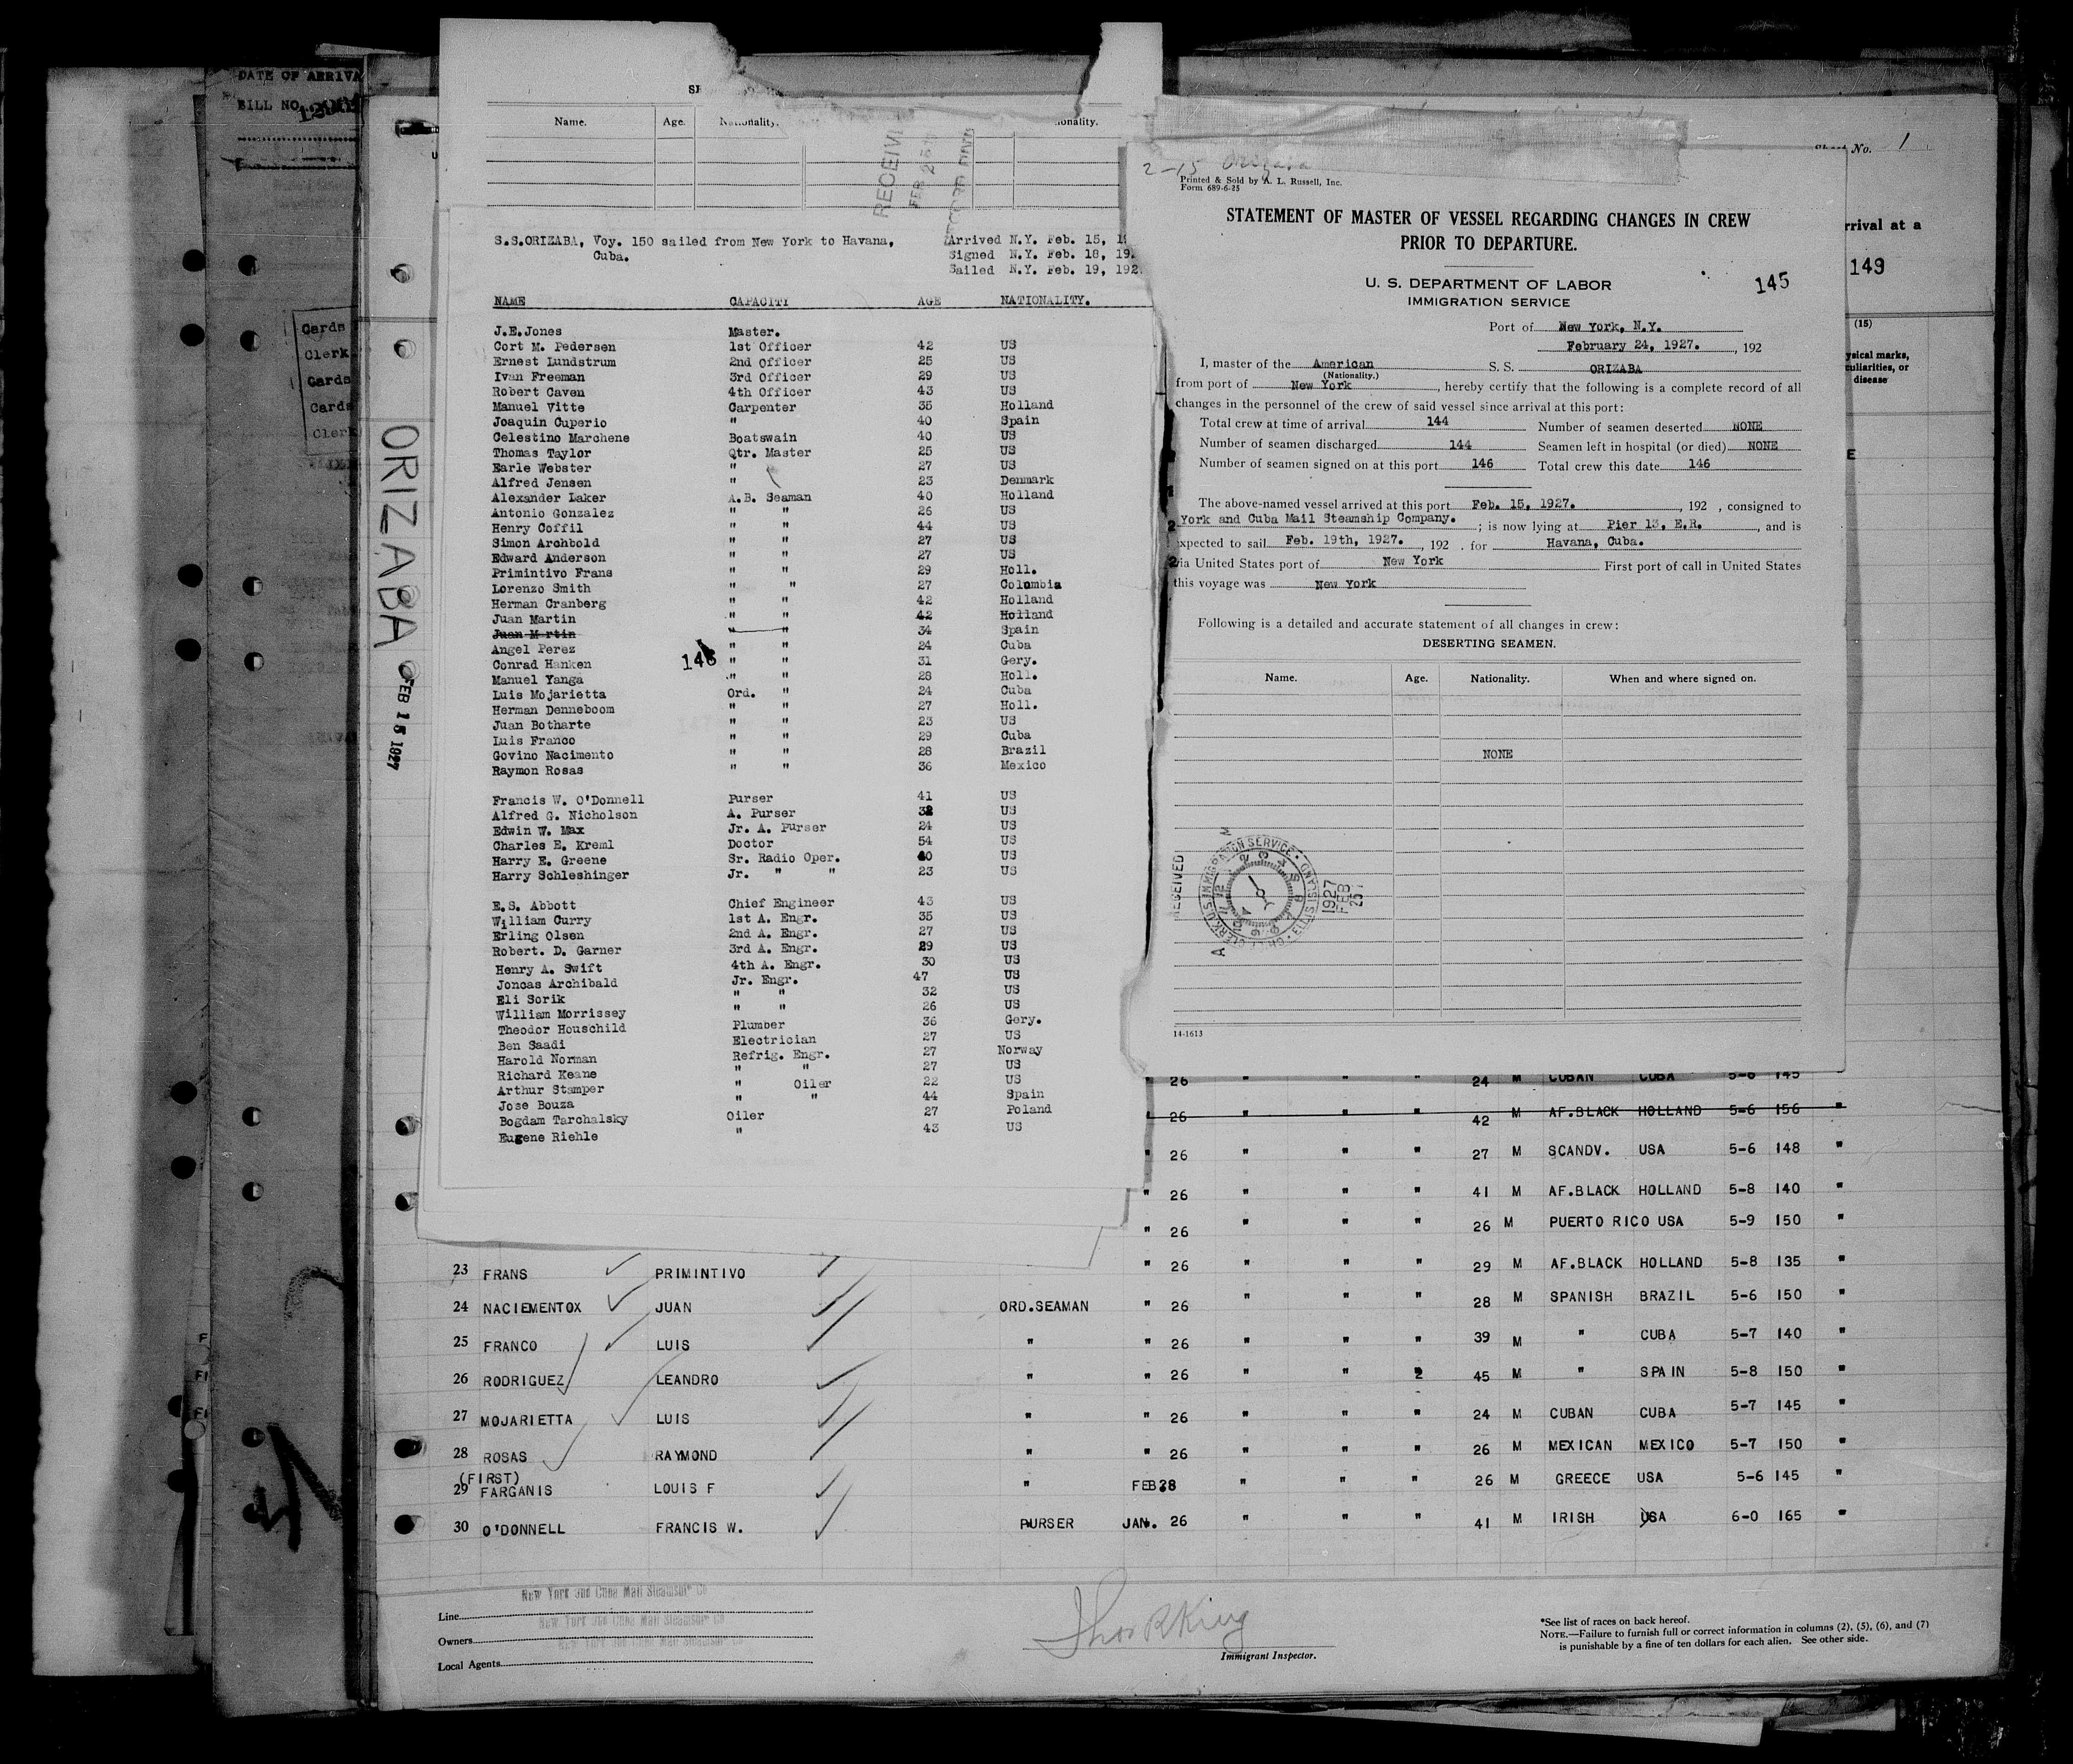 DATE OF ARRIVA
BILL NO.
Cards
Clerk
Cards
Cards
Clerk
ORIZABA
FEB 15 1927
Name. Age. Nationality. onality.
RECEIV
FEB 25
S.S.ORIZABA, Voy. 150 sailed from New York to Havana,
Cuba.
Arrived N.Y. Feb. 15, 1
Signed N.Y. Feb. 18, 19
Sailed N.Y. Feb. 19, 192
NAME CAPACITY AGE NATIONALITY.
J.E.Jones Master.
Cort M. Pedersen 1st Officer 42 US
Ernest Lundstrum 2nd Officer 25 US
Ivan Freeman 3rd Officer 29 US
Robert Caven 4th Officer 43 US
Manuel Vitte Carpenter 35 Holland
Joaquin Cuperio " 40 Spain
Celestino Marchene Boatswain 40 US
Thomas Taylor Qtr. Master 25 US
Earle Webster " 27 US
Alfred Jensen " 23 Denmark
Alexander Laker A.B. Seaman 40 Holland
Antonio Gonzalez " " 26 US
Henry Coffil " " 44 US
Simon Archbold " " 27 US
Edward Anderson " " 27 US
Primintivo Frans " " 29 Holl.
Lorenzo Smith " " 27 Colombia
Herman Cranberg " " 42 Holland
Juan Martin " " 42 Holland
Juan Martin " " 34 Spain
Angel Perez " " 24 Cuba
Conrad Hanken 146 " " 31 Gery.
Manuel Yanga " " 28 Holl.
Luis Mojarietta Ord. " 24 Cuba
Herman Denneboom " " 27 Holl.
Juan Botharte " " 23 US
Luis Franco " " 29 Cuba
Govino Nacimento " " 28 Brazil
Raymon Rosas " " 36 Mexico
Francis W. O'Donnell Purser 41 US
Alfred G. Nicholson A. Purser 32 US
Edwin W. Max Jr. A. Purser 24 US
Charles E. Kreml Doctor 54 US
Harry E. Greene Sr. Radio Oper. 40 US
Harry Schleshinger Jr. " " 23 US
E.S. Abbott Chief Engineer 43 US
William Curry 1st A. Engr. 35 US
Erling Olsen 2nd A. Engr. 27 US
Robert. D. Garner 3rd A. Engr. 29 US
Henry A. Swift 4th A. Engr. 30 US
Joncas Archibald Jr. Engr. 47 US
Eli Sorik " " 32 US
William Morrissey " " 26 US
Theodor Houschild Plumber 36 Gery.
Ben Saadi Electrician 27 US
Harold Norman Refrig. Engr. 27 Norway
Richard Keane " " 27 US
Arthur Stamper " Oiler 22 US
Jose Bouza " " 44 Spain
Bogdam Tarchalsky Oiler 27 Poland
Eugene Riehle " 43 US
2-15 Orizaba
Printed & Sold by A. L. Russell, Inc.
Form 689-6-25
STATEMENT OF MASTER OF VESSEL REGARDING CHANGES IN CREW
PRIOR TO DEPARTURE.
U. S. DEPARTMENT OF LABOR
IMMIGRATION SERVICE
145
Port of New York, N.Y.
February 24, 1927. , 192
I, master of the American S. S. ORIZABA
(Nationality.)
from port of New York , hereby certify that the following is a complete record of all
changes in the personnel of the crew of said vessel since arrival at this port:
Total crew at time of arrival 144 Number of seamen deserted NONE
Number of seamen discharged 144 Seamen left in hospital (or died) NONE
Number of seamen signed on at this port 146 Total crew this date 146
The above-named vessel arrived at this port Feb. 15, 1927. , 192 , consigned to
York and Cuba Mail Steamship Company. ; is now lying at Pier 13, E.R. , and is
expected to sail Feb. 19th, 1927. , 192 , for Havana, Cuba.
via United States port of New York First port of call in United States
this voyage was New York
Following is a detailed and accurate statement of all changes in crew:
DESERTING SEAMEN.
Name. Age. Nationality. When and where signed on.
NONE
RECEIVED
1927
FEB
25
14-1613
Sheet No. 1
rrival at a
149
(15)
ysical marks,
culiarities, or
disease
E
26 " " " 24 M CUBAN CUBA 5-6 145
26 42 M AF.BLACK HOLLAND 5-6 156 "
" 26 " " " 27 M SCANDV. USA 5-6 148 "
" 26 " " " 41 M AF.BLACK HOLLAND 5-8 140 "
" 26 " " " 26 M PUERTO RICO USA 5-9 150 "
23 FRANS PRIMINTIVO " 26 " " " 29 M AF.BLACK HOLLAND 5-8 135 "
24 NACIEMENTOX JUAN ORD.SEAMAN " 26 " " " 28 M SPANISH BRAZIL 5-6 150 "
25 FRANCO LUIS " " 26 " " " 39 M " CUBA 5-7 140 "
26 RODRIGUEZ LEANDRO " " 26 " " 2 45 M " SPAIN 5-8 150 "
27 MOJARIETTA LUIS " " 26 " " " 24 M CUBAN CUBA 5-7 145 "
28 ROSAS RAYMOND " " 26 " " " 26 M MEXICAN MEXICO 5-7 150 "
(FIRST)
29 FARGANIS LOUIS F " FEB 28 " " " 26 M GREECE USA 5-6 145 "
30 O'DONNELL FRANCIS W. PURSER JAN. 26 " " " 41 M IRISH USA 6-0 165 "
Line New York and Cuba Mail Steamship Co
Owners New York and Cuba Mail Steamship Co
Local Agents New York and Cuba Mail Steamship Co
Immigrant Inspector.
*See list of races on back hereof.
NOTE.—Failure to furnish full or correct information in columns (2), (5), (6), and (7)
is punishable by a fine of ten dollars for each alien. See other side.